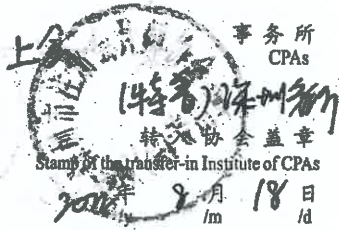 上会 事务所
CPAs
(特普)深圳分所
转入协会盖章
Stamp of the transfer-in Institute of CPAs
年 8 月 18 日
/y /m /d